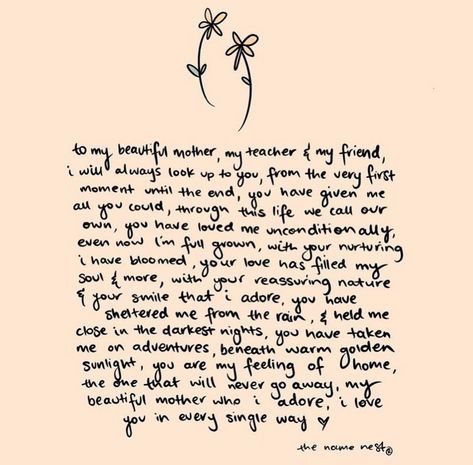 to my beautiful mother, my teacher & my friend,
i will always look up to you, from the very first
moment until the end, you have given me
all you could, through this life we call our
own, you have loved me unconditionally,
even now I'm full grown, with your nurturing
i have bloomed, your love has filled my
soul & more, with your reassuring nature
& your smile that i adore, you have
sheltered me from the rain, & held me
close in the darkest nights, you have taken
me on adventures, beneath warm golden
sunlight, you are my feeling of home,
the one that will never go away, my
beautiful mother who i adore, i love
you in every single way ♡
the name nest®